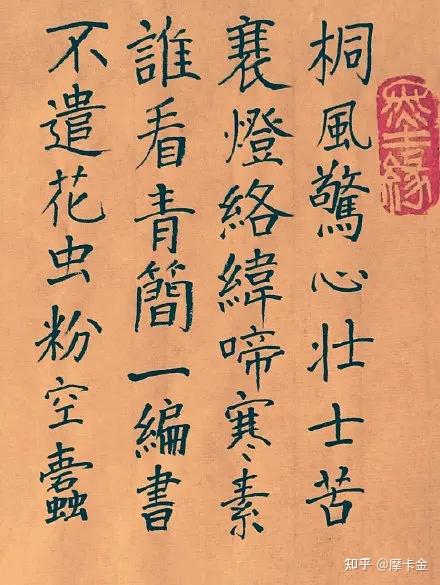 桐風驚心壯士苦
衰燈絡緯啼寒素
誰看青簡一編書
不遣花虫粉空蠹
知乎 @摩卡金